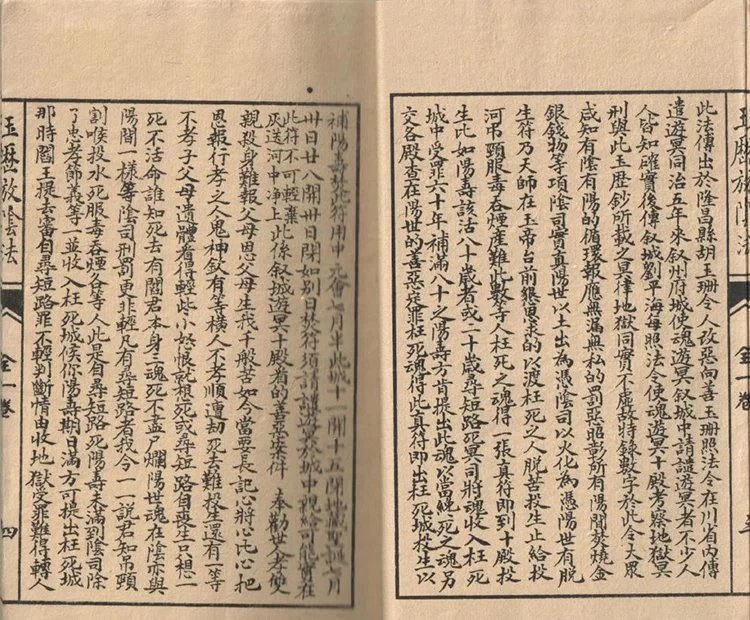 此法傳出於隆昌縣胡玉珊令人改惡向善玉珊照法令在川省內傳
遣遊冥同治五年來叙州府城使魂遊冥叙城中請譴遊冥者不少人
人皆知確實後傳叙城劉平海每照法令使魂遊冥十殿考察地獄冥
刑與此玉歷鈔所載之冥律地獄同實不虛故特錄數字於此令大眾
咸知有陰有陽的循環報應無漏與私的罰惡昭彰所有陽間焚燒金
銀錢物等項陰司實真陽世以土出為憑陰司以火化為憑陽世有脫
生符乃天師在玉帝台前懇恩求的以渡枉死之人脫苦投生止給投
河吊頸服毒吞煙產難此數等人枉死之魂得一張真符即到十殿投
生比如陽壽該活八十歲者或二十歲尋短路死冥司將魂收入枉死
城中受罪六十年補滿八十之陽壽方肯提出此魂以當絕死之魂另
交各殿查在陽世的善惡定罪枉死魂得此真符即出枉死城投生以
玉歷放陰法 全一卷
補陽壽焚此符用中元會七月半此城十一開十五閉地藏聖誕七月
卅日廿八開卅日閉如別日焚符須請譴遊冥於城中視給可能實在
此符不可輕棄此係叙城遊冥十殿者的善惡案件 奉勸世人孝雙
灰送河中淨上
親殺身難報父母恩父母生我千般苦如今當要長記心將心比心把
恩報行孝之人鬼神欽有等横人不孝順遭劫死去難投生還有一等
不孝子父母遺體看得輕些小妒恨就想死或尋短路自喪生只想一
死不活命誰知死去有閻君本身三魂死不盡尸爛陽世魂在陰亦與
陽間一樣等陰司刑罰更非輕凡有尋短路者我今一一說君知吊頸
割喉投水死服毒吞煙合等人此是自尋短路死陽壽未滿到陰司除
了忠孝節義等一並收入枉死城候你陽壽期日滿方可提出枉死城
那時閻王提去審自尋短路罪不輕判斷情由收地獄受罪難得轉人
玉歷放陰法 全一卷 四